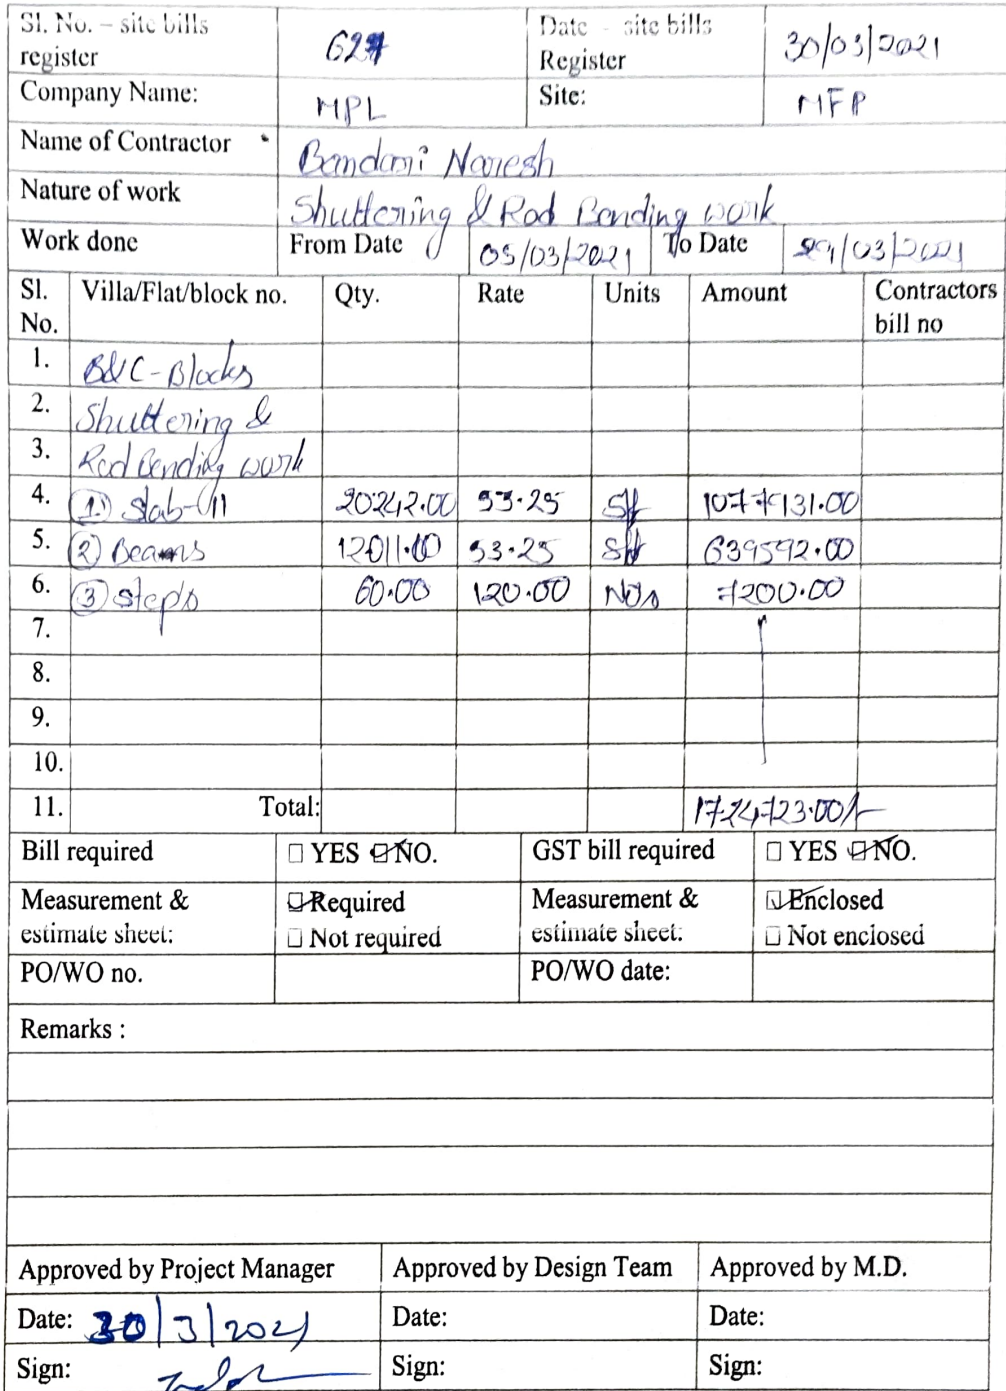 Sl. No. – site bills register 627 Date – site bills Register 30/03/2021
Company Name: MPL Site: MFP
Name of Contractor Bandari Naresh
Nature of work Shuttering & Rod Bending work
Work done From Date 05/03/2021 To Date 29/03/2021
Sl. No. Villa/Flat/block no. Qty. Rate Units Amount Contractors bill no
1. B&C-Blocks
2. Shuttering &
3. Rod Bending work
4. 1.) Slab-11 20242.00 53.25 Sft 1077931.00
5. 2) Beams 12011.00 53.25 Sft 639592.00
6. 3 Steps 60.00 120.00 Nos 7200.00
7.
8.
9.
10.
11. Total: 1724723.00/-
Bill required □ YES ☑ NO. GST bill required □ YES ☑ NO.
Measurement & estimate sheet: ☑ Required Measurement & estimate sheet: ☑ Enclosed
□ Not required □ Not enclosed
PO/WO no. PO/WO date:
Remarks :
Approved by Project Manager Approved by Design Team Approved by M.D.
Date: 30/3/2021 Date: Date:
Sign: Sign: Sign: